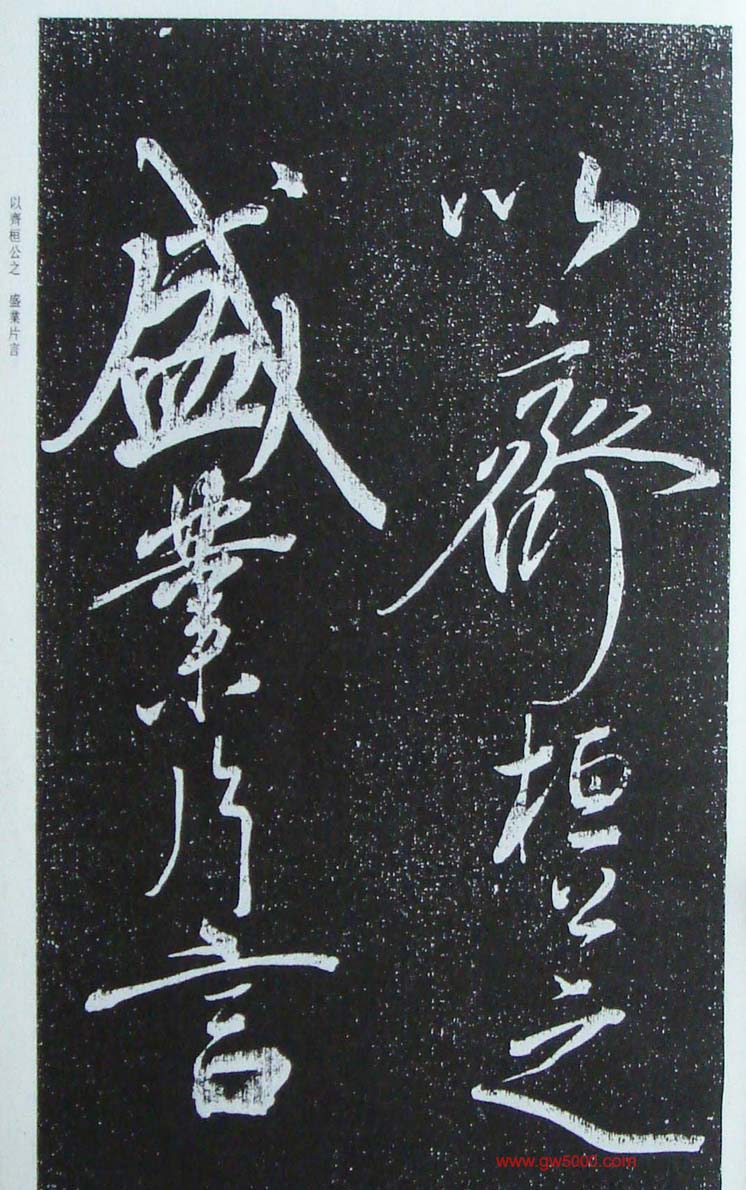 以齊桓公之
盛業片言
以齊桓公之 盛業片言
www.gw5000.com